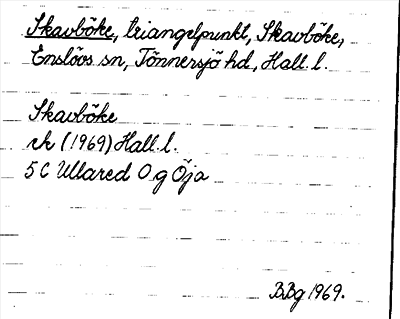 Skavböke, triangelpunkt, Skavböke,
Enslövs sn, Tönnersjö hd, Hall. l.
Skavböke
rk (1969) Hall. l.
5 C Ullared O g Öja
B.Bg 1969.